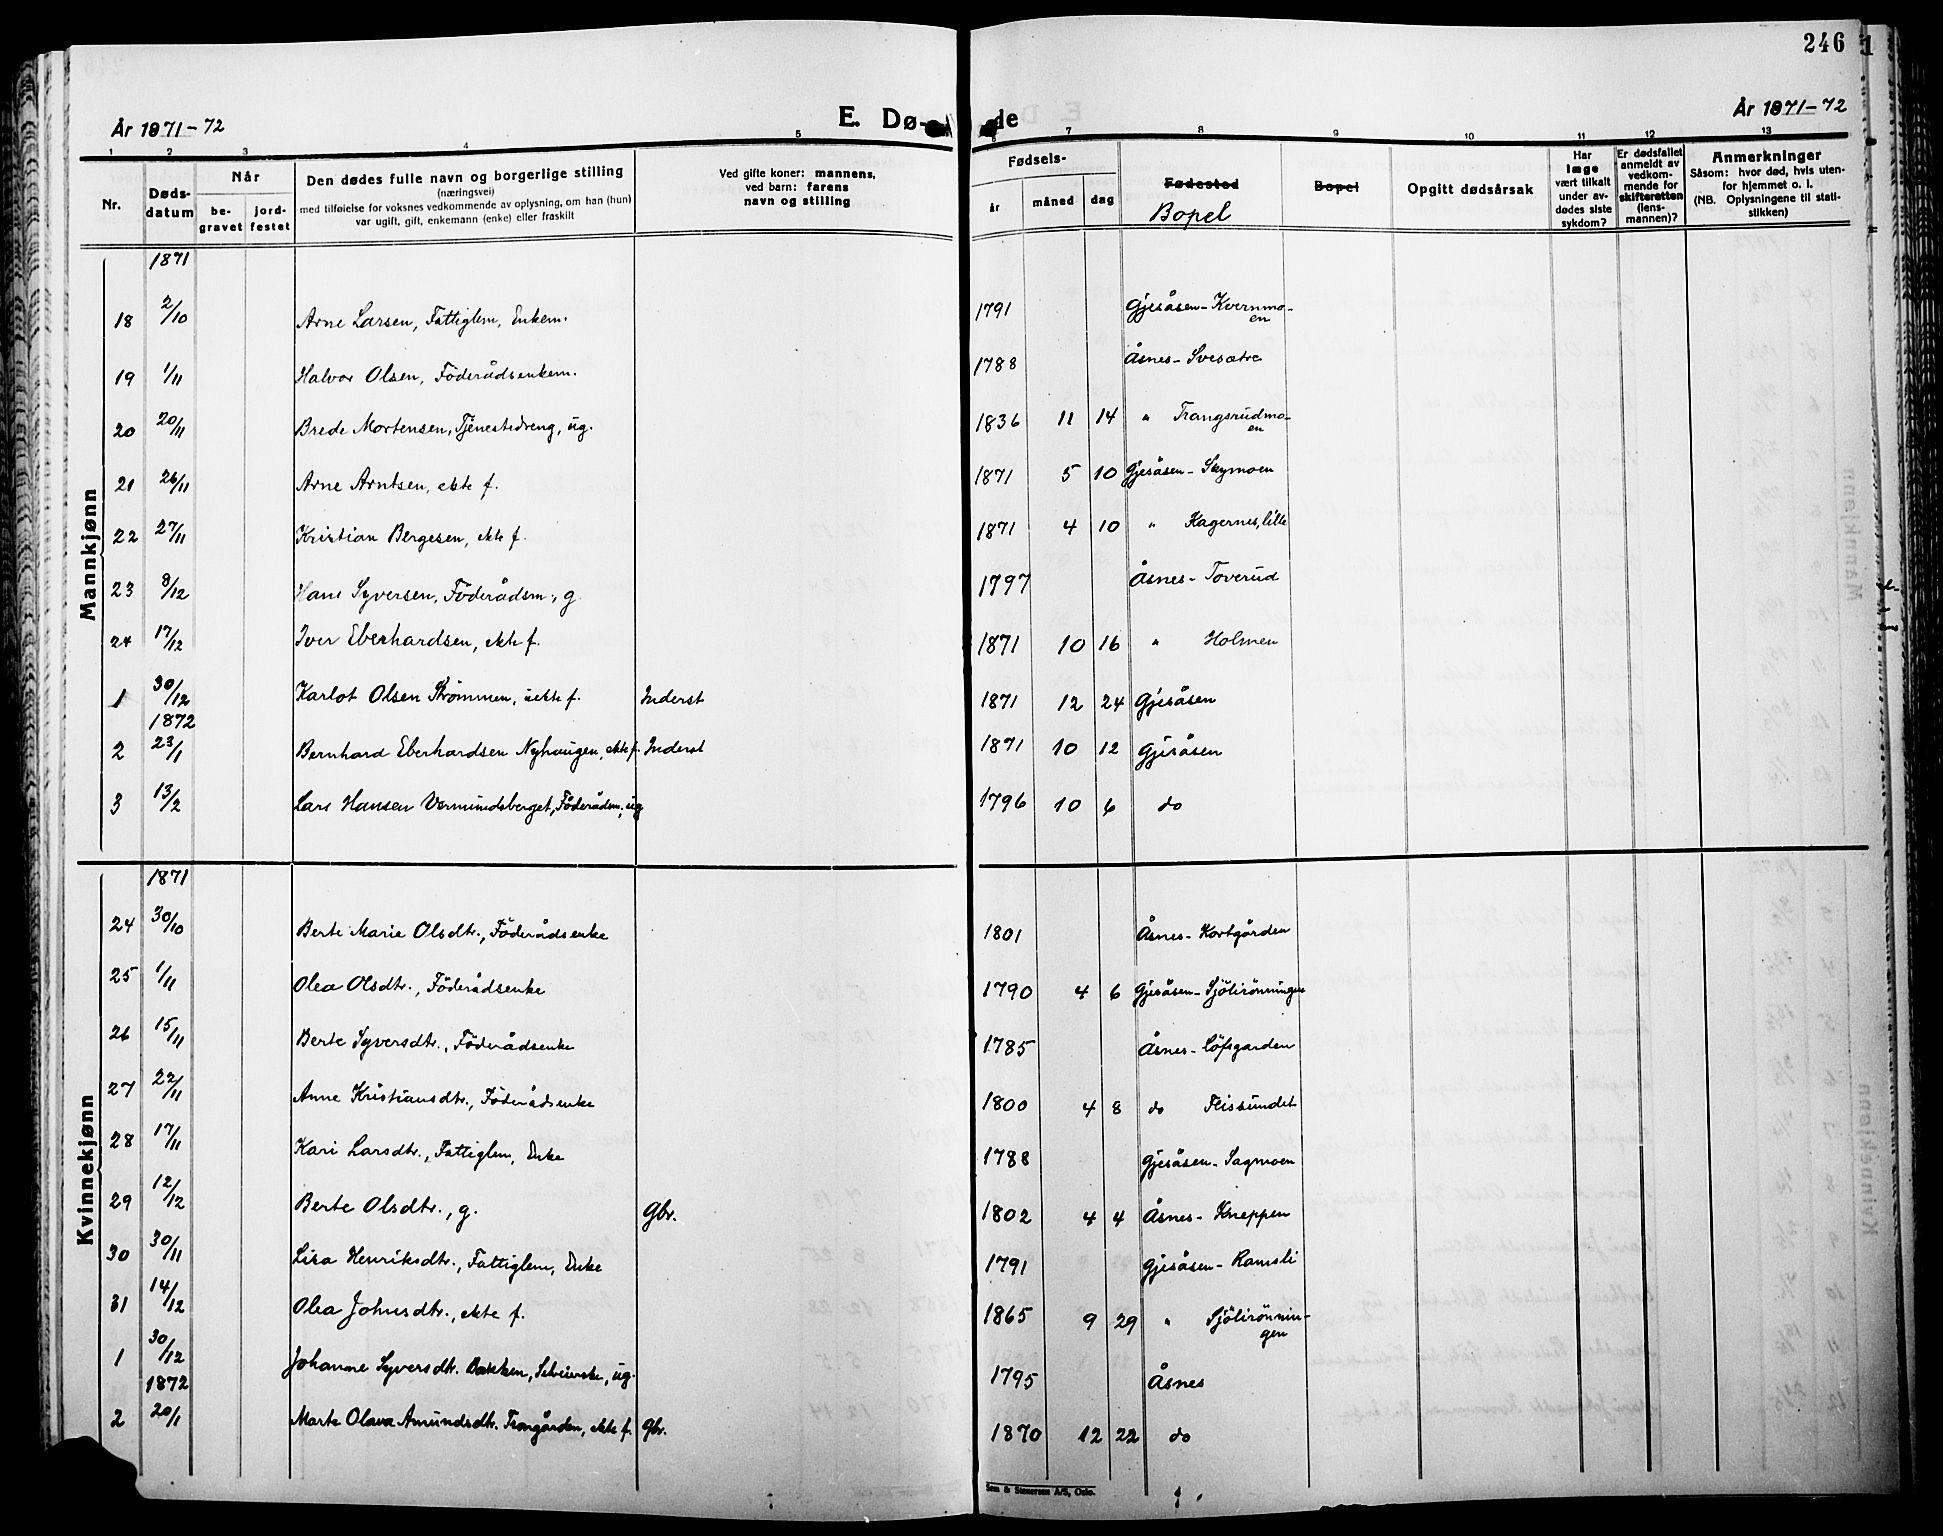 246
År 1871-72
E. Dø-
de
År 1871-72
1 2 3 4 5
7 8 9 10 11 12 13
Nr.
Døds-
datum
Når
be-
gravet
jord-
festet
Den dødes fulle navn og borgerlige stilling
(næringsvei)
med tilføielse for voksnes vedkommende av oplysning, om han (hun)
var ugift, gift, enkemann (enke) eller fraskilt
Ved gifte koner: mannens,
ved barn: farens
navn og stilling
Fødsels-
år måned dag
Fødested
Bopel
Bopel
Opgitt dødsårsak
Har
læge
vært tilkalt
under av-
dødes siste
sykdom?
Er dødsfallet
anmeldt av
vedkom-
mende for
skifteretten
(lens-
mannen)?
Anmerkninger
Såsom: hvor død, hvis uten-
for hjemmet o. l.
(NB. Oplysningene til stati-
stikken)
Mannkjønn
1871
18 2/10 Arne Larsen, Fattiglem, Enkem. 1791 Gjesåsen-Kvernmo-
en
19 1/11 Halvor Olsen, Föderådsenkem. 1788 Åsnes-Svesætre
20 20/11 Brede Mortensen, Tjenestedreng, ug. 1836 11 14 " Trangsrudmo-
en
21 26/11 Arne Arntsen, ekte f. 1871 5 10 Gjesåsen-Skymoen
22 27/11 Kristian Bergesen, ekte f. 1871 4 10 " Kagernes, lille
23 8/12 Hans Syversen, Föderådsm., g. 1797 Åsnes-Toverud
24 17/12 Iver Eberhardsen, ekte f. 1871 10 16 " Holmen
1 30/12 Karlot Olsen Strømmen, uekte f. Inderst 1871 12 24 Gjesåsen
1872
2 23/1 Bernhard Eberhardsen Nyhaugen, ekte f. Inderst 1871 10 12 Gjesåsen
3 13/2 Lars Hansen Vermundsberget, Föderådsm., ug 1796 10 6 do
Kvinnekjønn
1871
24 30/10 Berte Marie Olsdtr., Föderådsenke 1801 Åsnes-Kortgården
25 1/11 Olea Olsdtr., Föderådsenke 1790 4 6 Gjesåsen-Sjölirönningen
26 15/11 Berte Syversdtr., Föderådsenke 1785 Åsnes-Löfsgarden
27 22/11 Anne Kristiansdtr., Föderådsenke 1800 4 8 do Flissundet
28 17/11 Kari Larsdtr., Fattiglem, Enke 1788 Gjesåsen-Sagmoen
29 12/12 Berte Olsdtr., g. Gbr. 1802 4 4 Åsnes-Kneppen
30 30/11 Lisa Henriksdtr., Fattiglem, Enke 1791 Gjesåsen-Ramsli
31 14/12 Olea Johnsdtr., ekte f. 1865 9 29 " Sjölirönnin-
gen
1 30/12 Johanne Syversdtr. Bakken, Selveierske, ug. 1795 Åsnes
1872
2 20/1 Marte Olava Amundsdtr. Trongården, ekte f. Gbr. 1870 12 22 do
Sem & Stenersen A/S, Oslo.